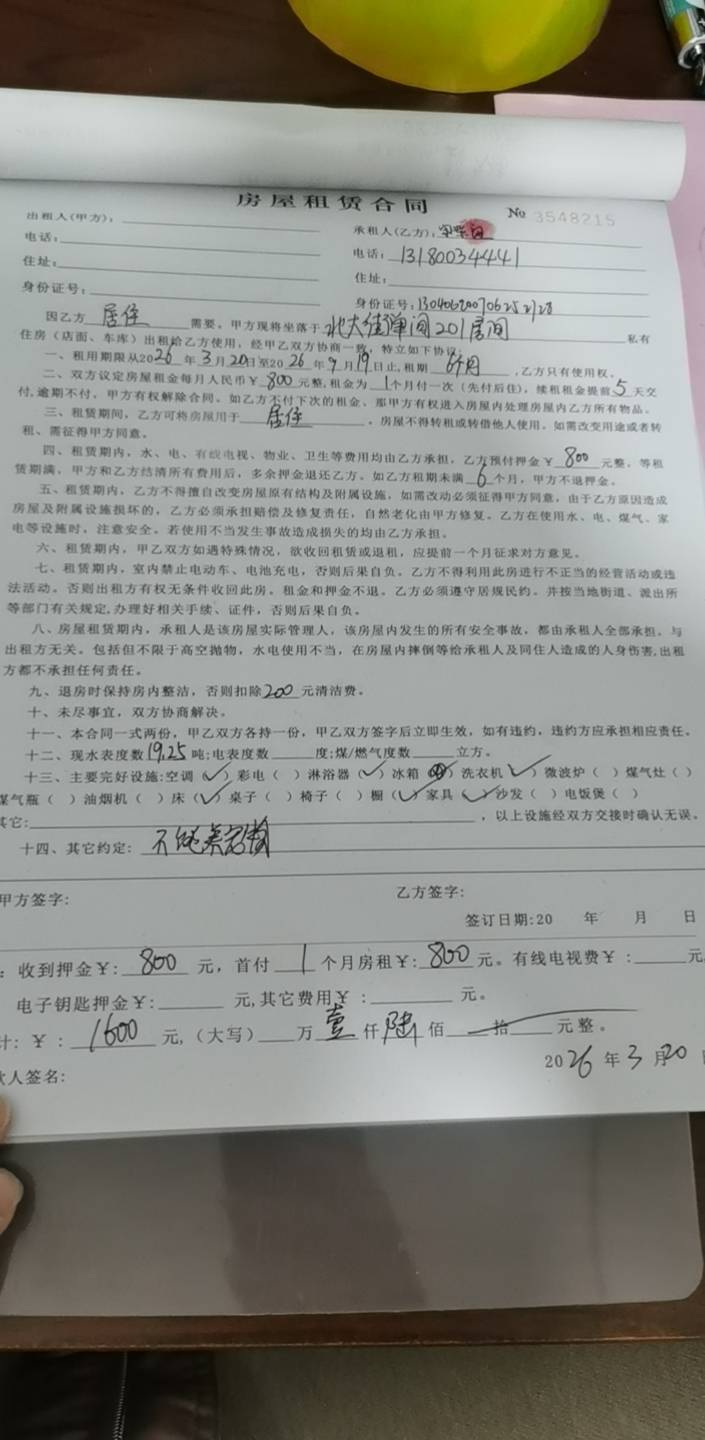 房屋租赁合同
№ 3548215
出租人(甲方):
承租人(乙方):
电话:
电话: 13180034441
住址:
住址:
身份证号:
身份证号:
因乙方 居住 需要,甲方现将坐落于 北大街单间201房间 私有
住房(店面、车库)出租给乙方使用,经甲乙双方协商一致,特立如下协议
一、租用期限从2026年3月20日至2026年9月19日止,租期 6个月 ,乙方只有使用权。
二、双方议定房屋租金每月人民币¥800元整,租金为1个月付一次(先付后住),续租租金提前5天交
付,逾期不付,甲方有权解除合同。如乙方不付下次的租金、那甲方有权进入房屋内处理房屋内乙方所有物品。
三、租赁期间,乙方可将房屋用于 居住 ,房屋不得转租或转借他人使用。如需改变用途或者转
租、需征得甲方同意。
四、租赁期内,水、电、有线电视、物业、卫生等费用均由乙方承担,乙方预付押金¥800元整,等租
赁期满,甲方和乙方结清所有费用后,多余押金退还乙方。如乙方租期未满6个月,甲方不退押金。
五、租赁期内,乙方不得擅自改变房屋原有结构及附属设施,如需改动必须征得甲方同意,由于乙方原因造成
房屋及附属设施损坏的,乙方必须承担赔偿及修复责任,自然老化由甲方修复。乙方在使用水、电、煤气、家
电等设施时,注意安全。若使用不当发生事故造成损失的均由乙方承担。
六、租赁期内,甲乙双方如遇特殊情况,欲收回租赁或退租,应提前一个月征求对方意见。
七、租赁期内,室内禁止电动车、电池充电,否则后果自负。乙方不得利用此房进行不正当的经营活动或违
法活动。否则出租方有权无条件收回此房。租金和押金不退。乙方必须遵守居规民约。并按当地街道、派出所
等部门有关规定,办理好相关手续、证件,否则后果自负。
八、房屋租赁期内,承租人是该房屋实际管理人,该房屋内发生的所有安全事故,都由承租人全部承担。与
出租方无关。包括但不限于高空抛物,水电使用不当,在房屋内摔倒等给承租人及同住人造成的人身伤害,出租
方都不承担任何责任。
九、退房时保持房内整洁,否则扣除200元清洁费。
十、未尽事宜,双方协商解决。
十一、本合同一式两份,甲乙双方各持一份,甲乙双方签字后立即生效,如有违约,违约方应承担相应责任。
十二、现水表度数19.25吨;电表度数 度;煤/燃气度数 立方。
十三、主要完好设施:空调(✓)彩电( )淋浴器(✓)冰箱( )洗衣机(✓)微波炉( )煤气灶( )
煤气瓶( )油烟机( )床(✓)桌子( )椅子( )橱(✓)家具(✓)沙发( )电饭煲( )
其它: ,以上设施经双方交接时确认无误。
十四、其它约定: 不能养宠物
甲方签字:
乙方签字:
签订日期:20 年 月 日
:收到押金¥:800元,首付1个月房租¥:800元。有线电视费¥: 元
电子钥匙押金¥: 元,其它费用¥: 元。
计:¥:1600元,(大写) 万壹仟陆佰 拾 元整。
2026年3月20
人签名: